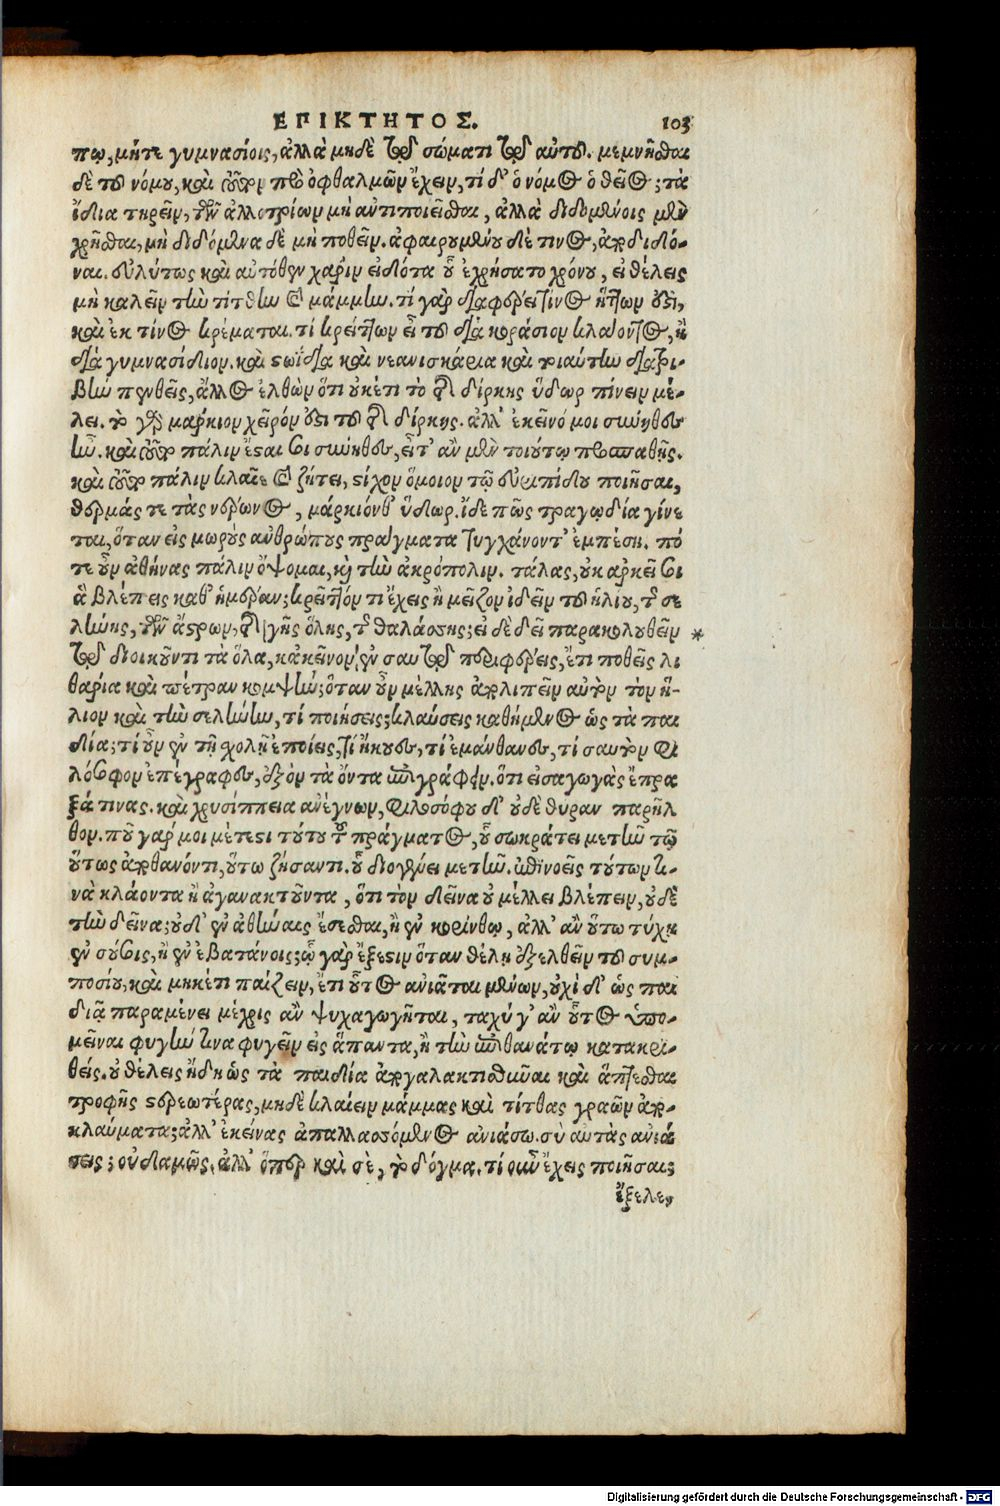 ΕΡΙΚΤΗΤΟΣ. 103
πῳ, μήτε γυμνασίοις, ἀλλὰ μηδὲ τῷ σώματι τῷ αὐτοῦ. μεμνῆσθαι
δὲ τοῦ νόμου, καὶ τοῦτον πρὸ ὀφθαλμῶν ἔχειν, τί δ' ὁ νόμος ὁ θεῖος; τὰ
ἴδια τηρεῖν, τῶν ἀλλοτρίων μὴ ἀντιποιεῖσθαι, ἀλλὰ διδομένοις μὲν
χρῆσθαι, μὴ διδόμενα δὲ μὴ ποθεῖν. ἀφαιρουμένου δέ τινος, ἀποδιδό-
ναι. εὐλύτως καὶ αὐτόθεν χάριν εἰδότα οὗ ἐχρήσατο χρόνου, εἰ θέλεις
μὴ καλεῖν τὴν τίτθην καὶ μάμμην. τί γὰρ διαφέρει τίνος ἥττων ἐστὶ,
καὶ ἐκ τίνος κρέμαται. τί κρείττων εἶ τοῦ διὰ κοράσιον κλαίοντος, ἢ
διὰ γυμνασίδιον. καὶ στωΐδια καὶ νεανισκάρια καὶ τοιαύτην διατρι-
βὴν πενθεῖς, ἄλλος ἐλθὼν ὅτι οὐκέτι τὸ τῆς δίρκης ὕδωρ πίνειν μέ-
λει. τὸ γὰρ μάρκιον χεῖρόν ἐστι τοῦ τῆς δίρκης. ἀλλ' ἐκεῖνό μοι σύνηθες
ἦν. καὶ τοῦτο πάλιν ἔσται σοι σύνηθες, εἶτ' ἂν μὲν τοιούτῳ προσπαθῇς.
καὶ τοῦτο πάλιν κλαῖε καὶ ζήτει, στίχον ὅμοιον τῷ εὐριπίδου ποιῆσαι,
θερμάς τε τὰς νέρωνος, μάρκιόνθ' ὕδωρ. ἴδε πῶς τραγῳδία γίνε
ται, ὅταν εἰς μωροὺς ἀνθρώπους πράγματα τυγχάνοντ' ἐμπέσῃ. πό
τε οὖν ἀθήνας πάλιν ὄψομαι, καὶ τὴν ἀκρόπολιν. τάλας, οὐκ ἀρκεῖ σοι
ἃ βλέπεις καθ' ἡμέραν; κρεῖττόν τι ἔχεις ἢ μεῖζον ἰδεῖν τοῦ ἡλίου, τῆς σε
λήνης, τῶν ἄστρων, τῆς γῆς ὅλης, τῆς θαλάσσης; εἰ δὲ δεῖ παρακολουθεῖν *
τῷ διοικοῦντι τὰ ὅλα, κἀκεῖνον ἐν σαυτῷ περιφέρεις, ἔτι ποθεῖς λι
θάρια καὶ πέτραν κομψήν; ὅταν οὖν μέλλῃς ἀπολιπεῖν αὐτὸν τὸν ἥ-
λιον καὶ τὴν σελήνην, τί ποιήσεις; κλαύσεις καθήμενος ὡς τὰ παι
δία; τί οὖν ἐν τῇ σχολῇ ἐποίεις, τί ἤκουες, τί ἐμάνθανες, τί σαυτὸν φι
λόσοφον ἐπέγραφες, ἐξὸν τὰ ὄντα ἐπιγράφειν. ὅτι εἰσαγωγὰς ἔπρα
ξά τινας. καὶ χρυσίππεια ἀνέγνων, φιλοσόφου δ' οὐδὲ θύραν παρῆλ
θον. ποῦ γάρ μοι μέτεστι τούτου τοῦ πράγματος, οὗ σωκράτει μετῆν τῷ
οὕτως ἀποθανόντι, οὕτω ζήσαντι. οὗ διογένει μετῆν. ἐπινοεῖς τούτων τι-
νὰ κλάοντα ἢ ἀγανακτοῦντα, ὅτι τὸν δεῖνα οὐ μέλλει βλέπειν, οὐδὲ
τὴν δεῖνα; οὐδ' ἐν ἀθήναις ἔσεσθαι, ἢ ἐν κορίνθῳ, ἀλλ' ἂν οὕτω τύχῃ
ἐν σούσοις, ἢ ἐν ἐβατάνοις; ᾧ γὰρ ἔξεστιν ὅταν θέλῃ ἐξελθεῖν τοῦ συμ-
ποσίου, καὶ μηκέτι παίζειν, ἔτι οὗτος ἀνιᾶται μένων, οὐχὶ δ' ὡς παι
διᾷ παραμένει μέχρις ἂν ψυχαγωγῆται, ταχύ γ' ἂν οὗτος ὑπο-
μείναι φυγήν τινα φυγεῖν εἰς ἅπαντα, ἢ τὴν ἐπὶ θανάτῳ κατακρι-
θείς. οὐ θέλεις ἤδη ὡς τὰ παιδία ἀπογαλακτισθῆναι καὶ ἅπτεσθαι
τροφῆς στερεωτέρας, μηδὲ κλαίειν μάμμας καὶ τίτθας γραῶν ἀπο-
κλαύματα; ἀλλ' ἐκείνας ἀπαλλασσόμενος ἀνιάσω. σὺ αὐτὰς ἀνιά
σεις; οὐδαμῶς, ἀλλ' ὅπερ καὶ σὲ, τὸ δόγμα. τί οὖν ἔχεις ποιῆσαι;
ἔξελε,
Digitalisierung gefördert durch die Deutsche Forschungsgemeinschaft - DFG